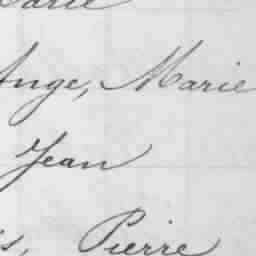 Ange, Marie
Jean
Pierre